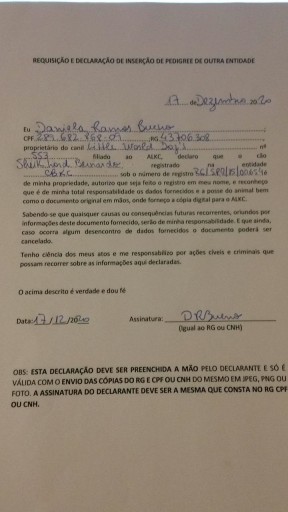 REQUISIÇÃO E DECLARAÇÃO DE INSERÇÃO DE PEDIGREE DE OUTRA ENTIDADE
17 de Dezembro 2020
Eu Daniela Ramos Bueno ;
CPF 289.682.868-09 , RG 43706308 ,
proprietário do canil Little World Dog's nº
553 filiado ao ALKC, declaro que o cão
Bernardo registrado na entidade
CBKC sob o número de registro
de minha propriedade, autorizo que seja feito o registro em meu nome, e reconheço
que é de minha total responsabilidade os dados fornecidos e a posse do animal bem
como o documento original em mãos, onde forneço a cópia digital para o ALKC.
Sabendo-se que quaisquer causas ou consequências futuras recorrentes, oriundos por
informações deste documento fornecido, serão de minha responsabilidade. E que ainda,
caso ocorra algum desencontro de dados fornecidos o documento poderá ser
cancelado.
Tenho ciência dos meus atos e me responsabilizo por ações cíveis e criminais que
possam recorrer sobre as informações aqui declaradas.
O acima descrito é verdade e dou fé
Data: 17/12/2020 Assinatura: DRBueno
(Igual ao RG ou CNH)
OBS: ESTA DECLARAÇÃO DEVE SER PREENCHIDA A MÃO PELO DECLARANTE E SÓ É
VÁLIDA COM O ENVIO DAS CÓPIAS DO RG E CPF OU CNH DO MESMO EM JPEG, PNG OU
FOTO. A ASSINATURA DO DECLARANTE DEVE SER A MESMA QUE CONSTA NO RG CPF
OU CNH.